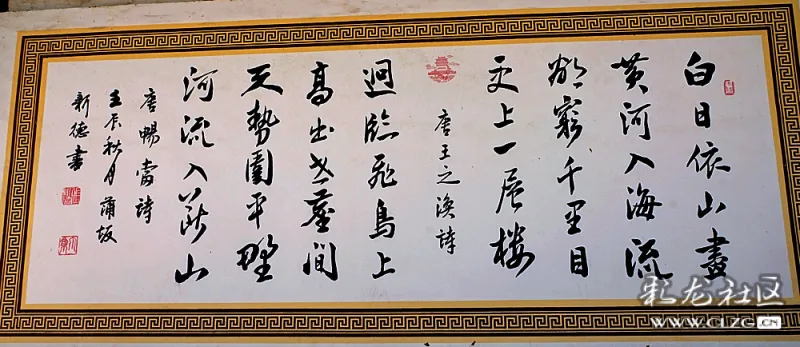 白日依山盡
黄河入海流
欲窮千里目
更上一层楼
唐王之渙詩
迥臨飛鳥上
高出世塵間
天勢圍平野
河流入斷山
唐暢當詩
壬辰秋月蒲坂
新德書
彩龙社区
WWW.CLZG.CN